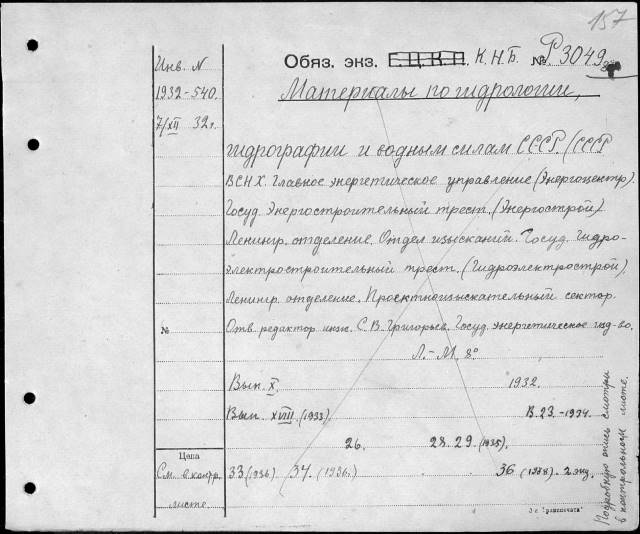 157
Инв. N
1932-540.
7/XII 32г.
Обяз. экз. Г.Ц.К.П. К.Н.Б. № Р3049
Материалы по гидрологии,
гидрографии и водным силам СССР. (СССР
ВСНХ. Главное энергетическое управление (Энергоцентр).
Госуд. Энергостроительный трест. (Энергострой)
Ленингр. отделение. Отдел изысканий. Госуд. гидро-
электростроительный трест. (Гидроэлектрострой)
Ленингр. отделение. Проектноизыскательный сектор.
№ Отв. редактор инж. С. В. Григорьев. Госуд. энергетическое изд-во.
Л.-М. 8°
Вып. X. 1932.
Вып. XVIII (1933) В. 23.-1934.
26. 28. 29. (1935).
Цена
См. в контр. 33 (1936) 34. (1936.) 36 (1938). 2 экз.
листе.
Подробную опись смотри
в контрольном листе.